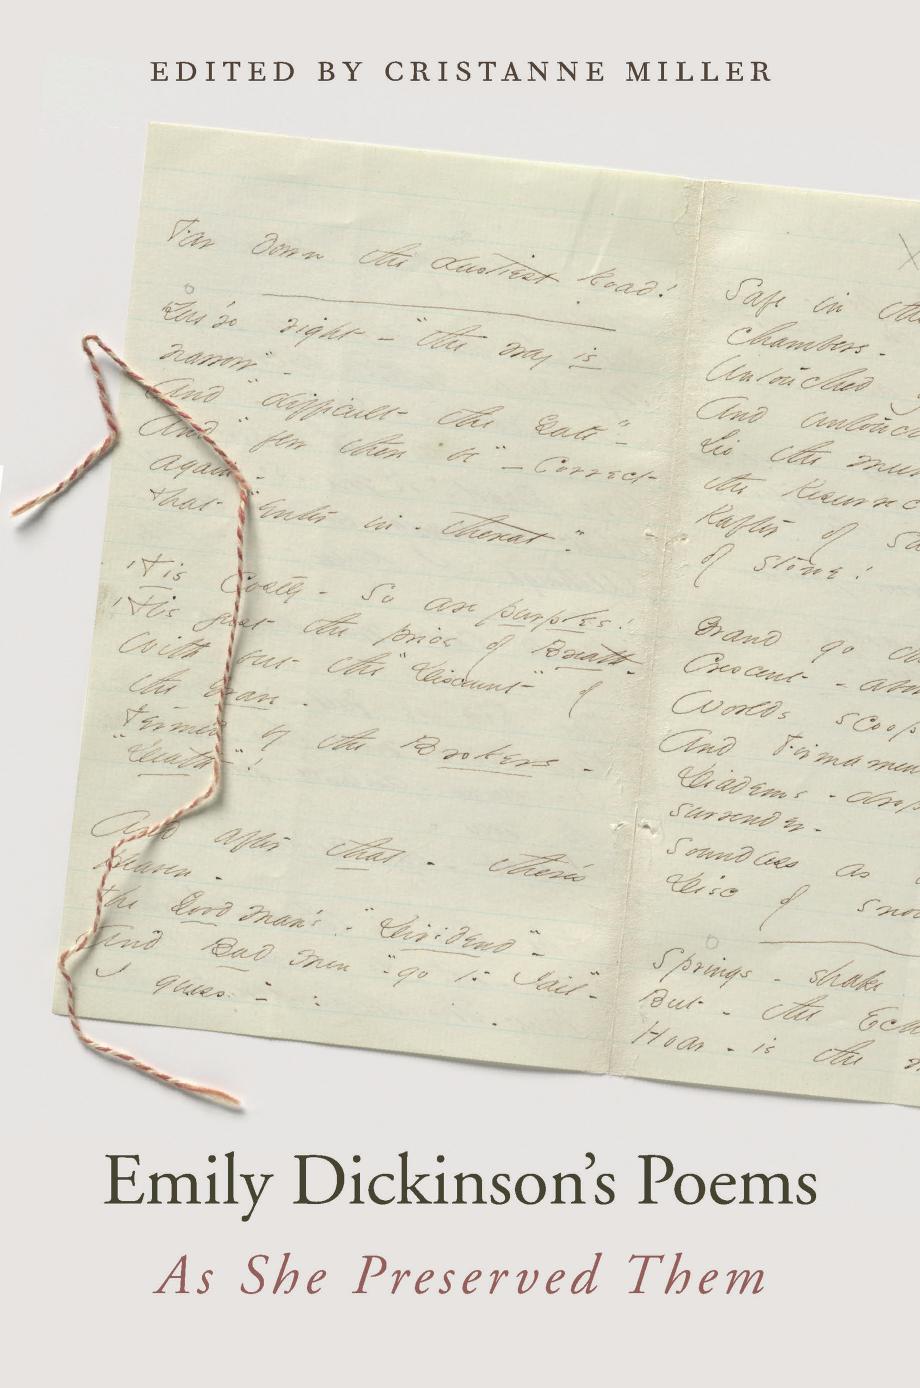 EDITED BY CRISTANNE MILLER
Far down the dustiest Road!
You're right - "the way is
narrow" -
And "difficult the Gate" -
And "few there be" - Correct
again -
That "enter in - thereat".
'Tis Costly - So are purples!
'Tis just the price of Breath -
With but the "Discount" of
the Grave -
Termed by the Brokers -
"Death"!
And after that - there's
Heaven -
The Good man's - "Dividend" -
And Bad men - "go to Jail" -
I guess -
Safe in
Chambers -
Untouched
And untouch
Lie the
the Resurrec
Rafter of Sa
of stone!
Grand go
Crescent - abo
Worlds scoop
And Firmamen
Diadems - drop
surrender -
Soundless as
Disc of snow
Springs - shake
But - the Ech
Hoar - is the
Emily Dickinson's Poems
As She Preserved Them